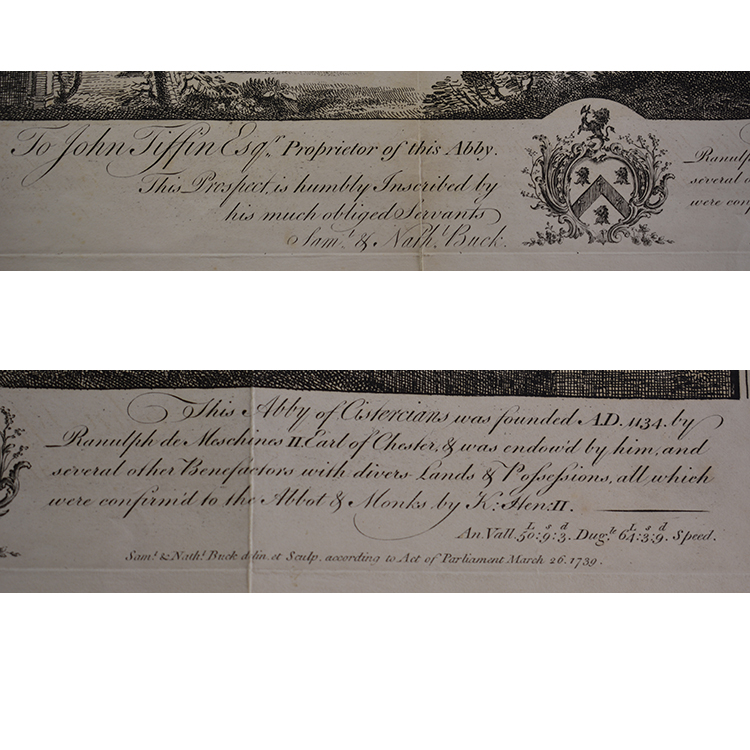 To John Tiffin Esqr. Proprietor of this Abby.
This Prospect, is humbly Inscribed by
his much obliged Servants
Saml. & Nathl. Buck.
Ranulph
several o
were conf
This Abby of Cistercians was founded A.D. 1134. by
Ranulph de Meschines II. Earl of Chester, & was endow'd by him, and
several other Benefactors with divers Lands & Possessions, all which
were confirm'd to the Abbot & Monks, by K: Hen: II.
An. Vall. 50L: 9s: 3d. Dugle. 64L: 3s: 9d. Speed.
Saml. & Nathl. Buck delin. et Sculp. according to Act of Parliament March 26. 1739.